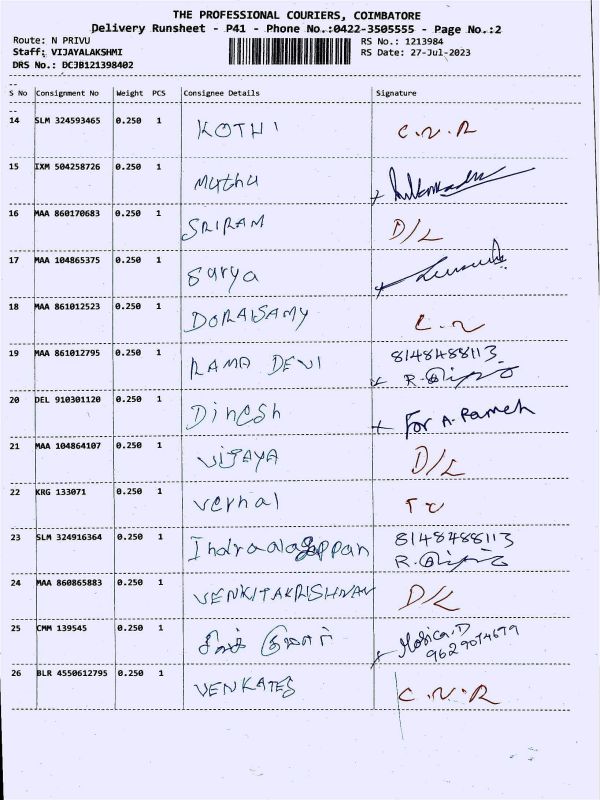 THE PROFESSIONAL COURIERS, COIMBATORE
Delivery Runsheet - P41 - Phone No.:0422-3505555 - Page No.:2
Route: N PRIVU RS No.: 1213984
Staff: VIJAYALAKSHMI RS Date: 27-Jul-2023
DRS No.: DCJB121398402
S No Consignment No Weight PCS Consignee Details Signature
14 SLM 324593465 0.250 1 KOTHI C.N.R
15 IXM 504258726 0.250 1 Muthu
16 MAA 860170683 0.250 1 SRIRAM D/L
17 MAA 104865375 0.250 1 Surya
18 MAA 861012523 0.250 1 DORAISAMY
19 MAA 861012795 0.250 1 RAMA DEVI 8148488113
20 DEL 910301120 0.250 1 Dinesh For A. Ramesh
21 MAA 104864107 0.250 1 VIJAYA D/L
22 KRG 133071 0.250 1 Vernal
23 SLM 324916364 0.250 1 8148488113
24 MAA 860865883 0.250 1 VENKITAKRISHNAN D/L
25 CMM 139545 0.250 1 குமார்
9629074679
26 BLR 4550612795 0.250 1 VENKATES C.N.R